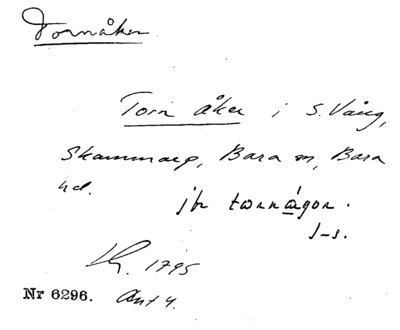 Tornåker
Torn åker i S. Vång,
Skammarp, Bara sn, Bara
hd.
jfr tornågor.
J-s.
Lh. 1795
Nr 6296. Ant 4.